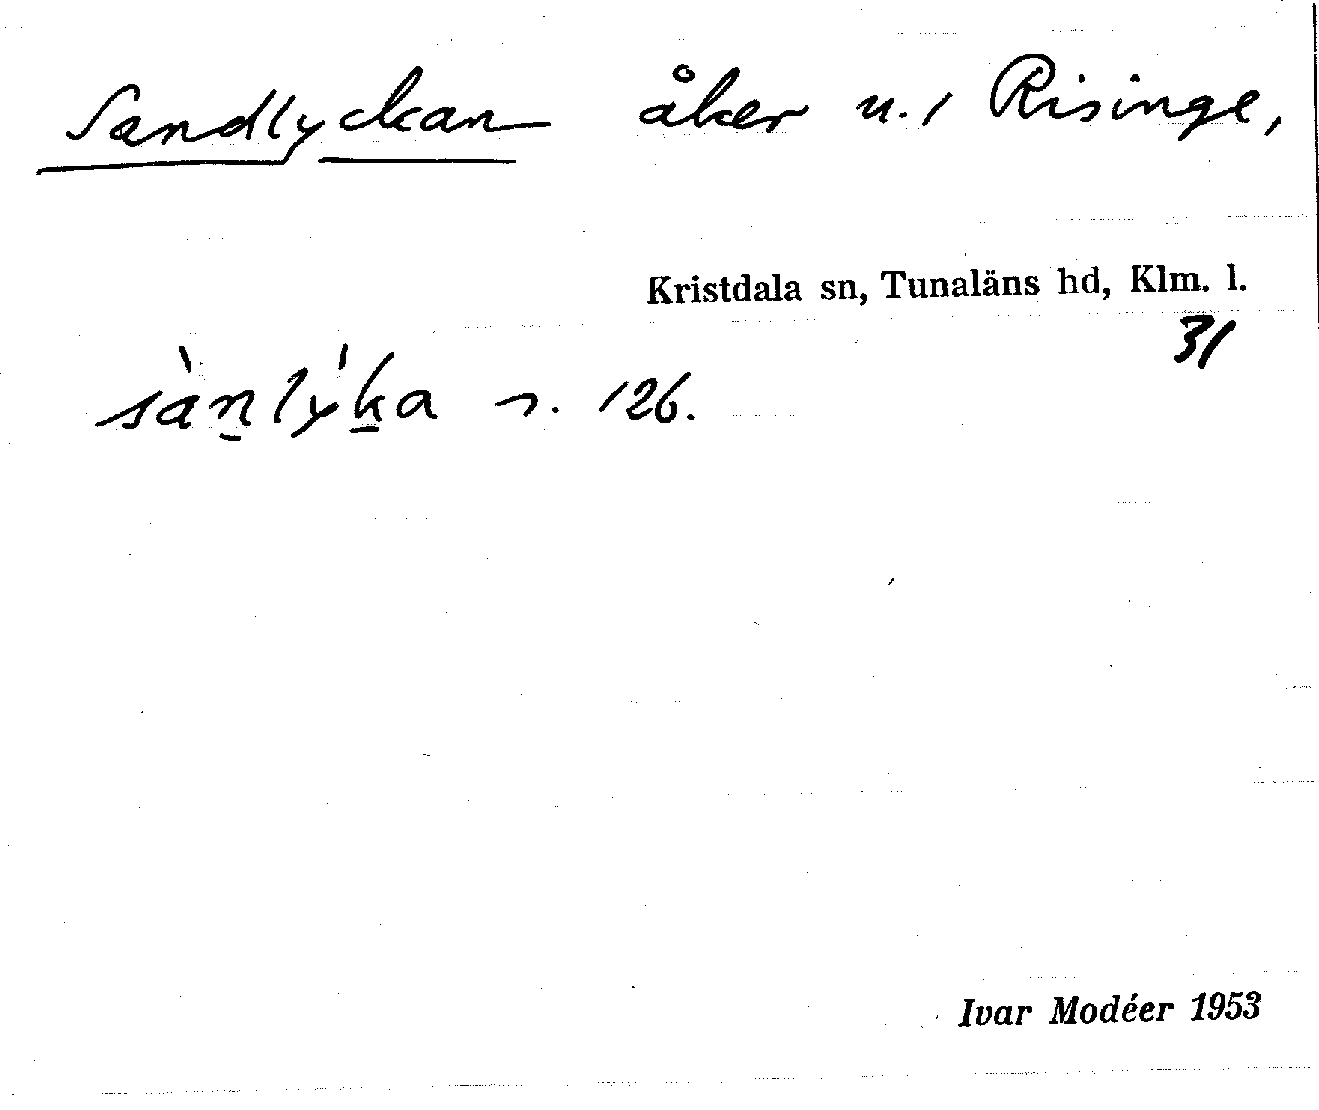 Sandlyckan åker u./ Risinge,
Kristdala sn, Tunaläns hd, Klm. l.
31
sàn̠lýk̠a s. 126.
Ivar Modéer 1953